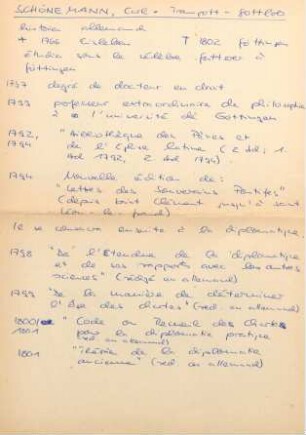 SCHÖNEMANN, Car. - Traugott - Gottlob
historien allemand
+ 1766 Eisleben † 1802 Göttingen
étudia sous le célèbre Gatterer à
Göttingen
1787 degré de docteur en droit
1799 professeur extraordinaire de philosophie
à l'université de Göttingen
1792, "Bibliothèque des Pères et
1794 de l'Eglise latine" (2 Bd: 1.
Bd 1792, 2 Bd 1794).
1794 Nouvelle édition de:
"Lettres des Souverains Pontifes"
(depuis Saint Clément jusqu'à Saint
Léon - le - grand)
Il se consacra ensuite à la diplomatique.
1798 "De l'Etendue de la diplomatique
et de ses rapports avec les autres
sciences" (rédigé en allemand)
1799 "De la manière de déterminer
l'âge des chartes" (red. en allemand)
1800/ "Code ou Recueil des Chartes
1801 pour la diplomatie pratique
red. en allemand)
1801 "Théorie de la diplomatie
ancienne" (red. en allemand)